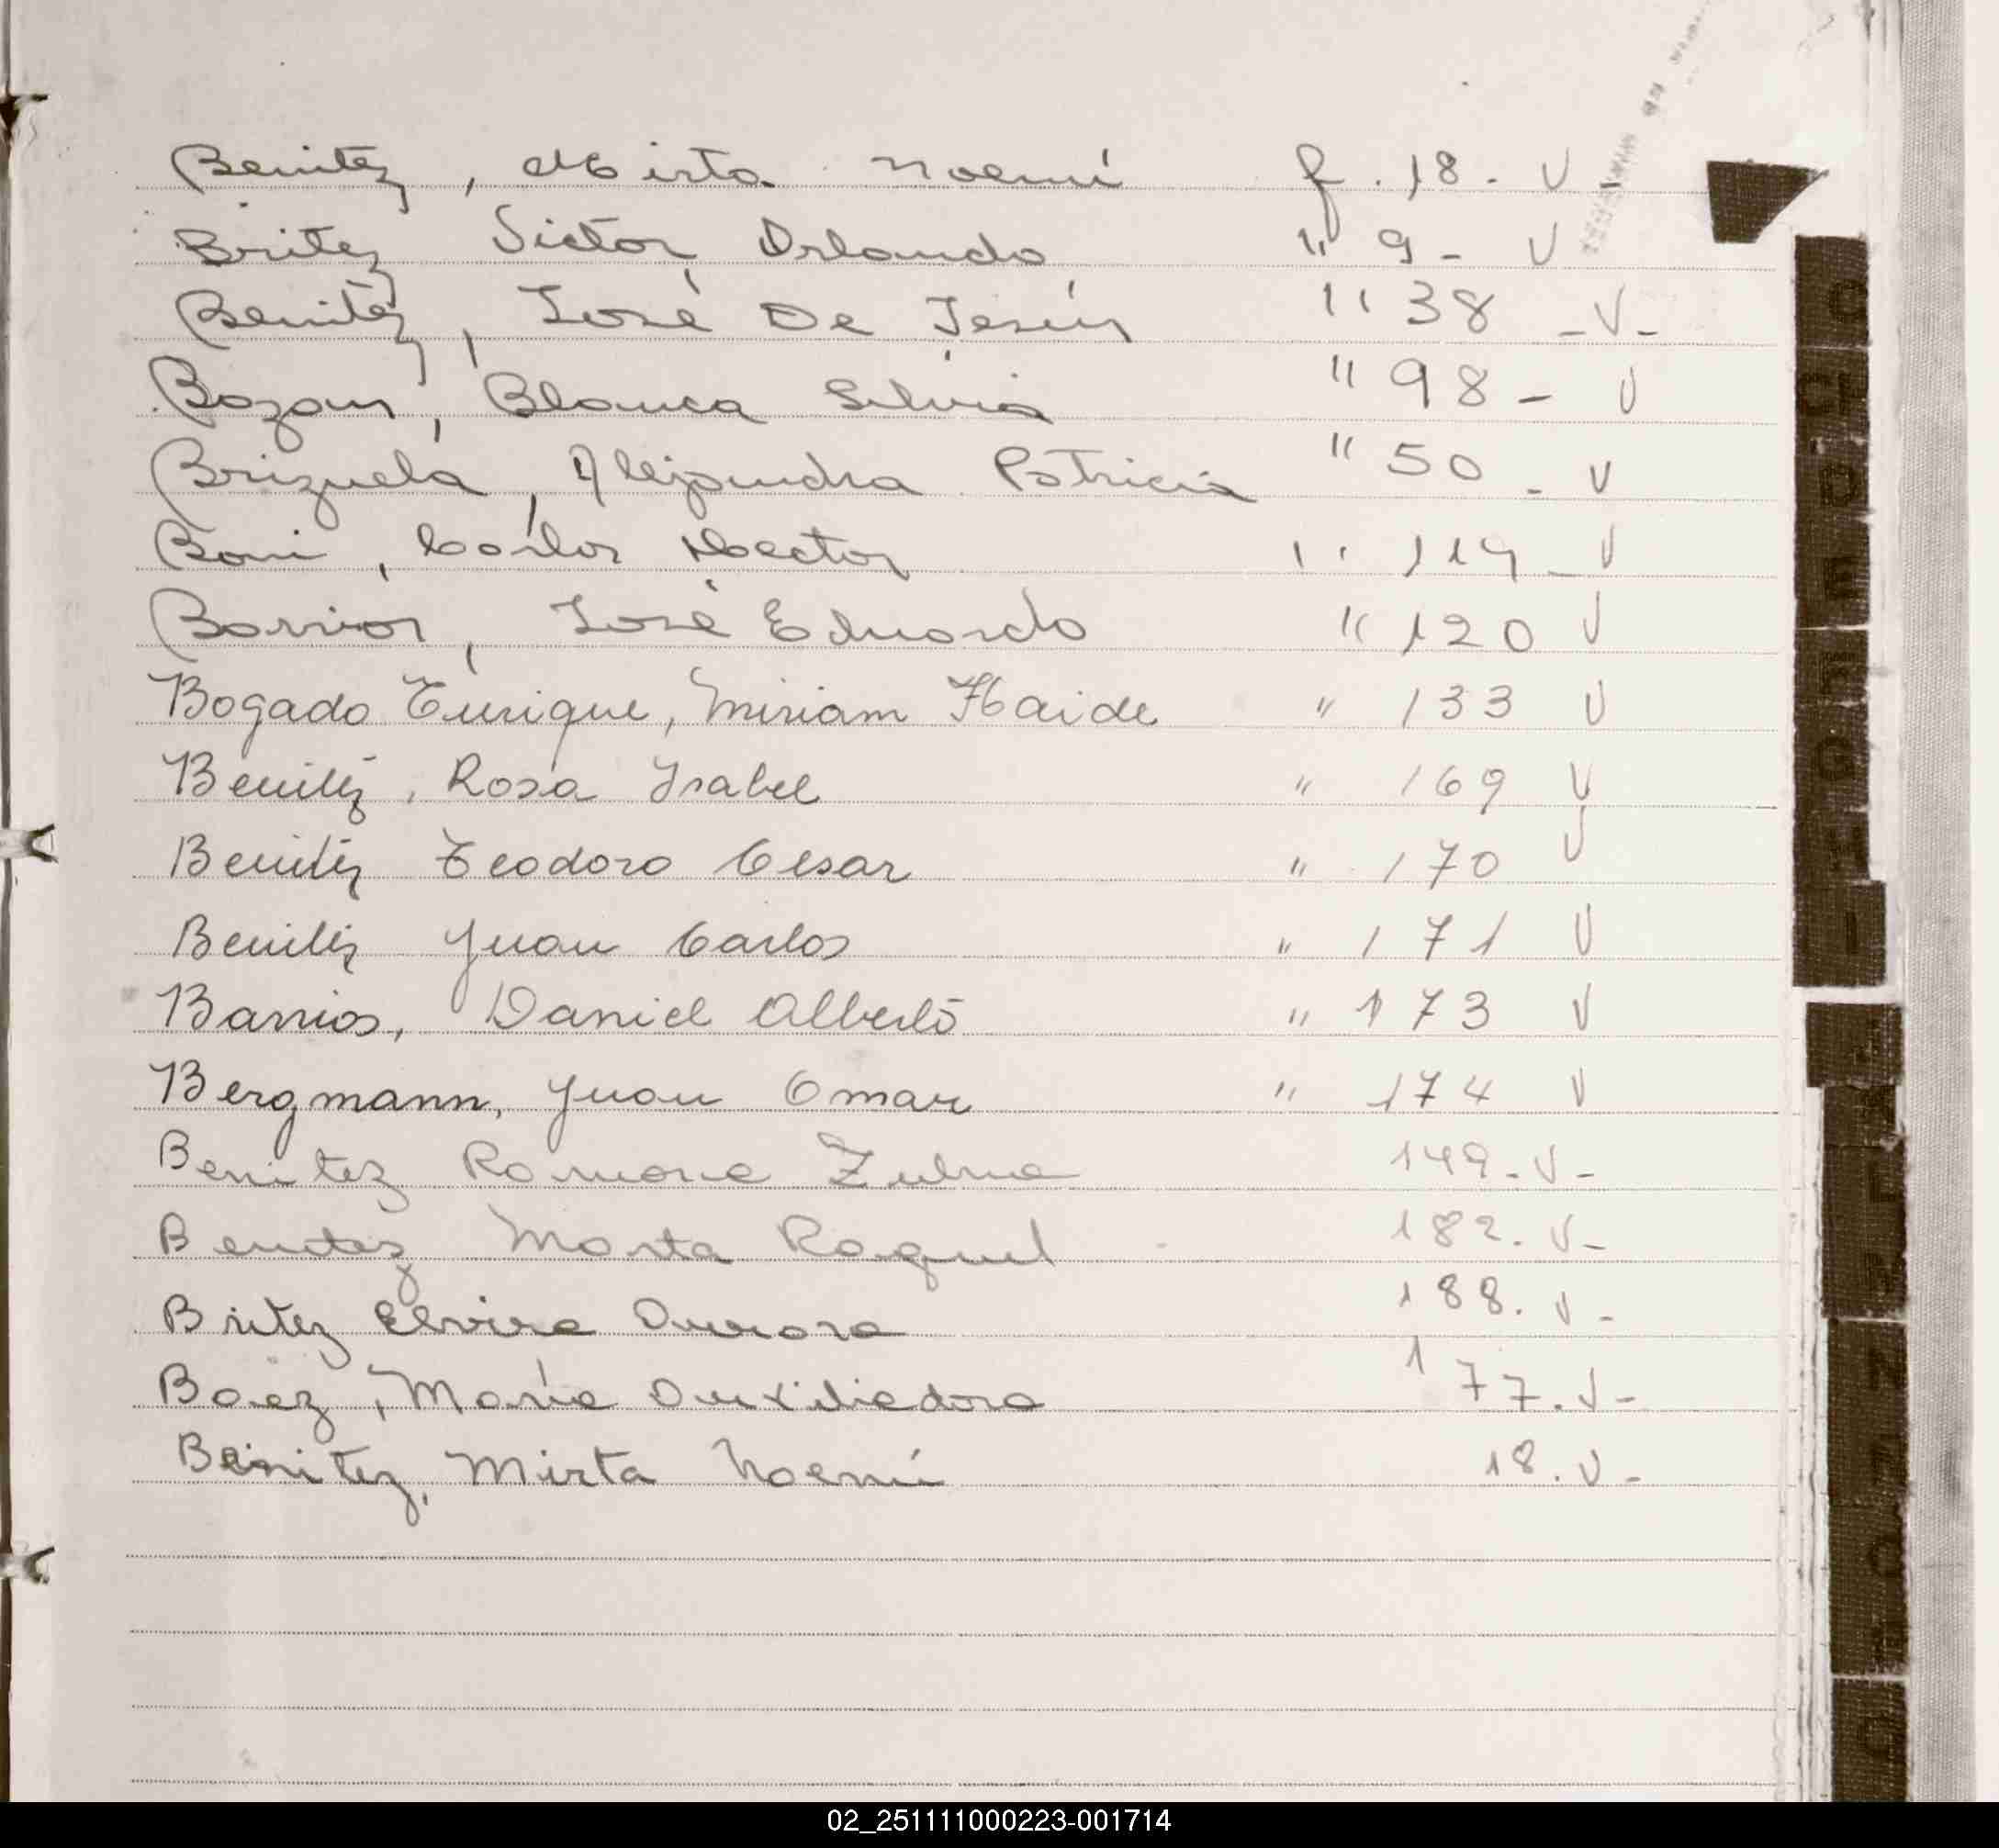 Benitez, Mirta Noemí f. 18. V -
Britez Victor Orlando " 9 - V
Benitez, José De Jesús " 38 - V -
Bazan, Blanca Silvia " 98 - V
Brizuela, Alejandra Patricia " 50 - V
Boni, Carlos Hector " 119 - V
Barrios, José Eduardo " 120 V
Bogado Enrique, Miriam Haide " 133 V
Benitez, Rosa Isabel " 169 V
Benitez Teodoro Cesar " 170 V
Benitez Juan Carlos " 171 V
Barrios, Daniel Alberto " 173 V
Bergmann, Juan Omar " 174 V
Benitez Ramona Zulma 149. V -
Benitez Marta Raquel 182. V -
Britez Elvira Aurora 188. V -
Baez, María Auxiliadora 177. V -
Benitez, Mirta Noemí 18. V -
02_251111000223-001714